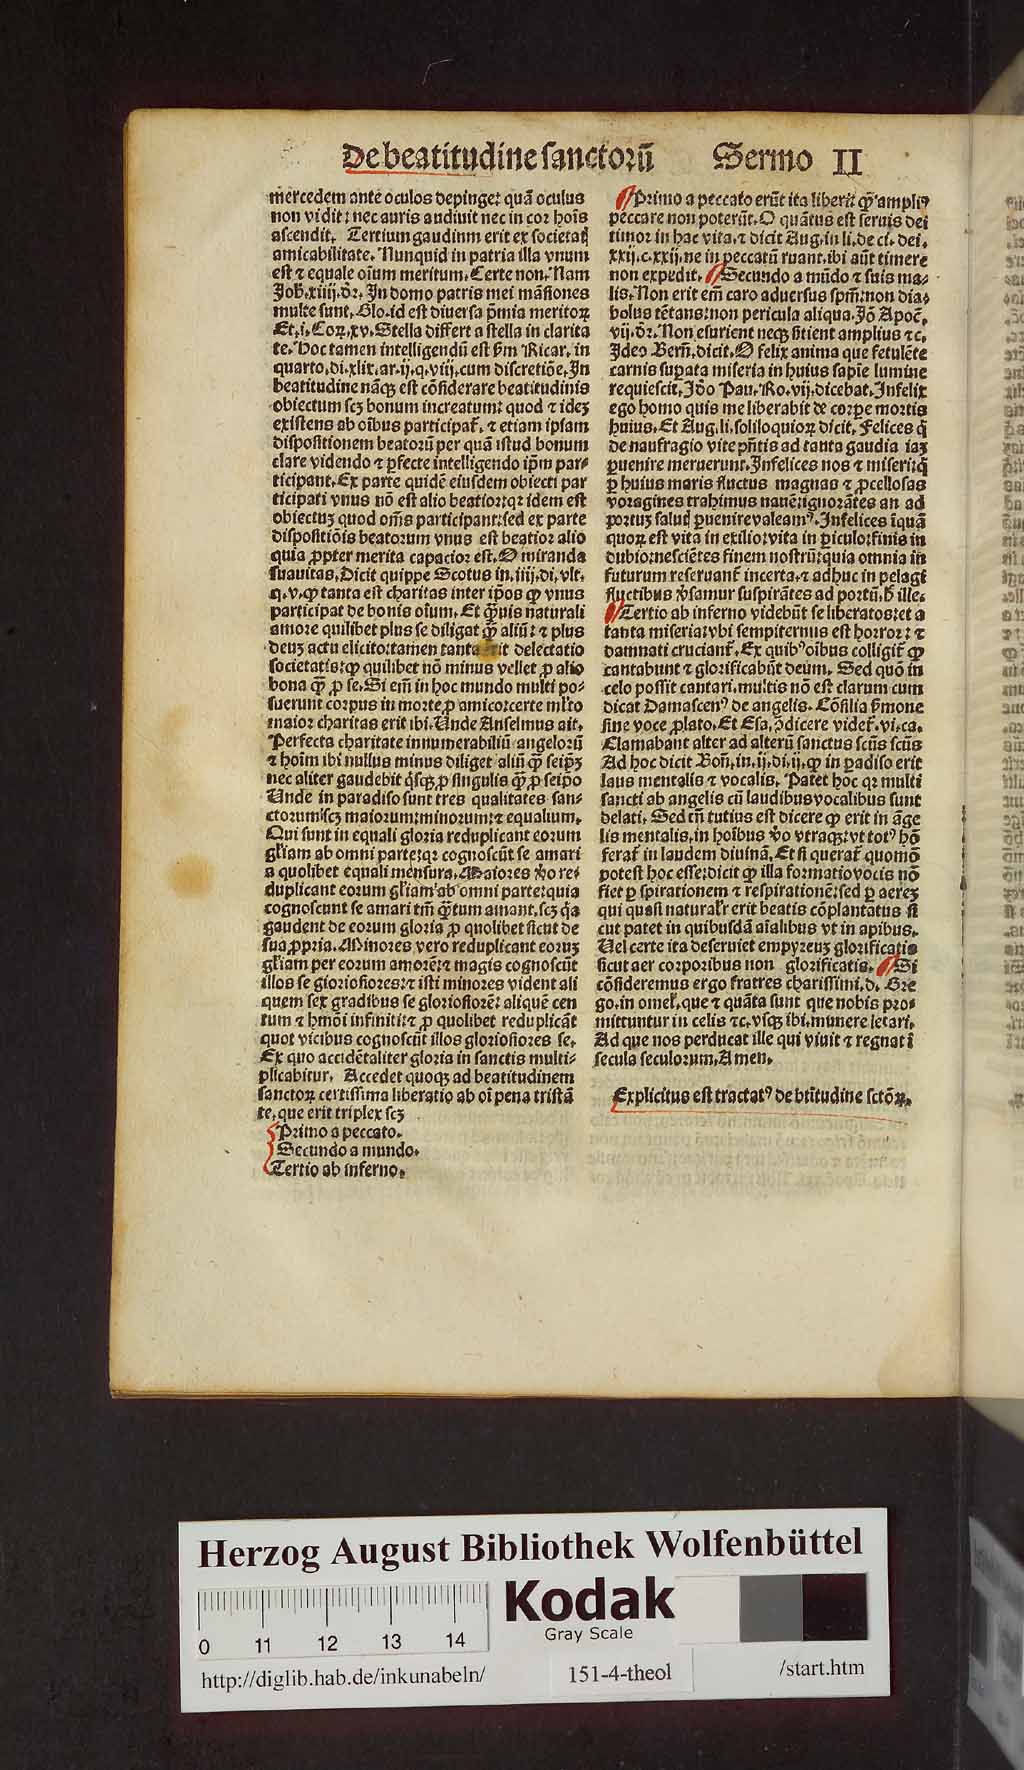 De beatitudine sanctorū Sermo II
mercedem ante oculos depinge: quā oculus
non vidit: nec auris audiuit nec in cor hoīs
ascendit. Tertium gaudium erit ex societatꝭ
amicabilitate. Nunquid in patria illa vnum
est ⁊ equale oīum meritum. Certe non. Nam
Joh̄. xiiij. dr̄. In domo patris mei māsiones
multe sunt. Glo. id est diuersa p̄mia meritoꝝ
Et .i. Coꝝ. xv. Stella differt a stella in clarita
te. Hoc tamen intelligendū est ẜm Ricar. in
quarto. di. xlix. ar. ij. q. viij. cum discretiōe. In
beatitudine nāqꝫ est cōsiderare beatitudinis
obiectum scꝫ bonum increatum: quod ⁊ ideꝫ
existens ab oībus participat̄. ⁊ etiam ipsam
dispositionem beatorū per quā istud bonum
clare videndo ⁊ ꝑfecte intelligendo ip̄m par-
ticipant. Ex parte quidē eiusdem obiecti par
ticipati vnus nō est alio beatior: qꝛ idem est
obiectuꝫ quod om̄s participant: sed ex parte
dispositiōis beatorum vnus est beatior alio
quia ꝓpter merita capacior est. O miranda
suauitas. Dicit quippe Scotus in. iiij. di. vlt.
q. v. ꝙ tanta est charitas inter ip̄os ꝙ vnus
participat de bonis oīum. Et q̄uis naturali
amore quilibet plus se diligat q̄ȝ aliū: ⁊ plus
deuꝫ actu elicito: tamen tanta erit delectatio
societatis: ꝙ quilibet nō minus vellet ꝓ alio
bona q̄ȝ ꝓ se. Si em̄ in hoc mundo multi po-
suerunt corpus in morte ꝓ amico: certe ml̄to
maior charitas erit ibi. Unde Anselmus ait.
Perfecta charitate innumerabiliū angelorū
⁊ hoīm ibi nullus minus diliget aliū q̄ȝ seip̄ꝫ
nec aliter gaudebit q̇sqꝫ ꝓ singulis q̄ȝ ꝓ seip̄o
Unde in paradiso sunt tres qualitates san-
ctorum: scꝫ maiorum: minorum: ⁊ equalium.
Qui sunt in equali gloria reduplicant eorum
gl̄iam ab omni parte: qꝛ cognoscūt se amari
a quolibet equali mensura. Maiores ꝟo re-
duplicant eorum gl̄iam ab omni parte: quia
cognoscunt se amari tm̄ q̄ȝtum amant. scꝫ q̇a
gaudent de eorum gloria ꝓ quolibet sicut de
sua ꝓpria. Minores vero reduplicant eoruꝫ
gl̄iam per eorum amorē: ⁊ magis cognoscūt
illos se gloriosiores: ⁊ isti minores vident ali
quem sex gradibus se gloriosiorē: aliquē cen
tum ⁊ hmōi infiniti: ⁊ ꝓ quolibet reduplicāt
quot vicibus cognoscūt illos gloriosiores se.
Ex quo accidētaliter gloria in sanctis multi-
plicabitur. Accedet quoqꝫ ad beatitudinem
sanctoꝝ certissima liberatio ab oī pena tristā
te. que erit triplex scꝫ
Primo a peccato.
Secundo a mundo.
Tertio ab inferno.
Primo a peccato erūt ita liberi: ꝙ ampliꝰ
peccare non poterūt. O quātus est seruis dei
timor in hac vita. ⁊ dicit Aug. in li. de ci. dei.
xxij. c. xxij. ne in peccatū ruant. ibi aūt timere
non expedit. Secundo a mūdo ⁊ suis ma-
lis. Non erit em̄ caro aduersus spm̄: non dia-
bolus tētans: non pericula aliqua. Jō Apoc̄.
vij. dr̄. Non esurient neqꝫ sitient amplius ⁊c.
Ideo Bern̄. dicit. O felix anima que fetulēte
carnis suꝑata miseria in huius sapīe lumine
requiescit. Jdō Pau. Ro. vij. dicebat. Infelix
ego homo quis me liberabit de corꝑe mortis
huius. Et Aug. li. soliloquioꝝ dicit. Felices q̇
de naufragio vite pn̄tis ad tanta gaudia iaꝫ
ꝑuenire meruerunt. Infelices nos ⁊ miseri: q̇
ꝑ huius maris fluctus magnas ⁊ ꝓcellosas
voragines trahimus nauē: ignorātes an ad
portuꝫ salutꝭ ꝑuenire valeamꝰ. Infelices īquā
quoꝝ est vita in exilio: vita in ꝑiculo: finis in
dubio: nesciētes finem nostrū: quia omnia in
futurum reseruant̄ incerta. ⁊ adhuc in pelagi
fluctibus ꝟsamur suspirātes ad portū. h̄ ille.
Tertio ab inferno videbūt se liberatos: et a
tanta miseria: vbi sempiternus est horror: ⁊
damnati cruciant̄. Ex quibꝰ oībus colligit̄ ꝙ
cantabunt ⁊ glorificabūt deum. Sed quō in
celo possit cantari. multis nō est clarum cum
dicat Damascenꝰ de angelis. Cōsilia ẜmone
sine voce ꝓlato. Et Esa. ꝯ̄dicere videt̄. vi. ca.
Clamabant alter ad alterū sanctus scūs scūs
Ad hoc dicit Bon̄. in. ij. di. ij. ꝙ in ꝑadiso erit
laus mentalis ⁊ vocalis. Patet hoc qꝛ multi
sancti ab angelis cū laudibus vocalibus sunt
delati. Sed tn̄ tutius est dicere ꝙ erit in āge
lis mentalis. in hoībus ꝟo vtraqꝫ: vt totꝰ hō
ferat̄ in laudem diuinā. Et si querat̄ quomō
potest hoc esse: dicit ꝙ illa formatio vocis nō
fiet ꝑ spirationem ⁊ respirationē: sed ꝑ aereꝫ
qui quasi natural̄r erit beatis cōplantatus si
cut patet in quibusdā aīalibus vt in apibus.
Uel certe ita deseruiet empyreuꝫ glorificatis
sicut aer corporibus non glorificatis. Si
cōsideremus ergo fratres charissimi. d. Gre
go. in omel̄. que ⁊ quāta sunt que nobis pro-
mittuntur in celis ⁊c. vsqꝫ ibi. munere letari.
Ad que nos perducat ille qui viuit ⁊ regnat ī
secula seculorum. Amen.
Explicitus est tractatꝰ de btītudine sctōꝝ.
Herzog August Bibliothek Wolfenbüttel
Kodak
Gray Scale
0 11 12 13 14
http://diglib.hab.de/inkunabeln/ 151-4-theol /start.htm